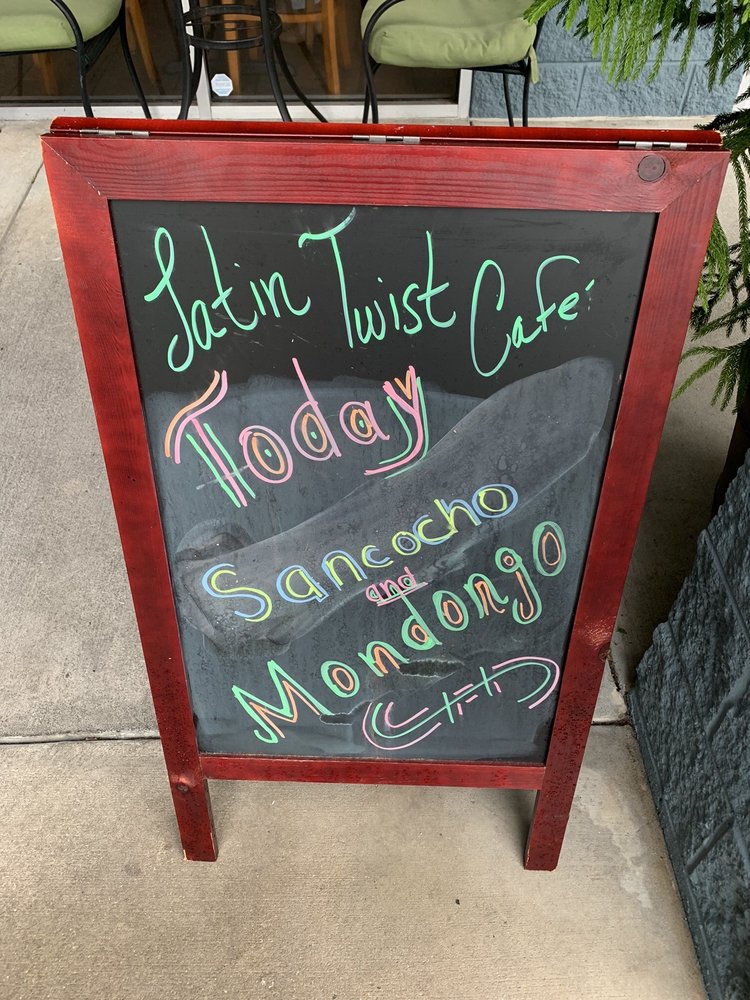 Latin Twist Café
Today
Sancocho
and
Mondongo